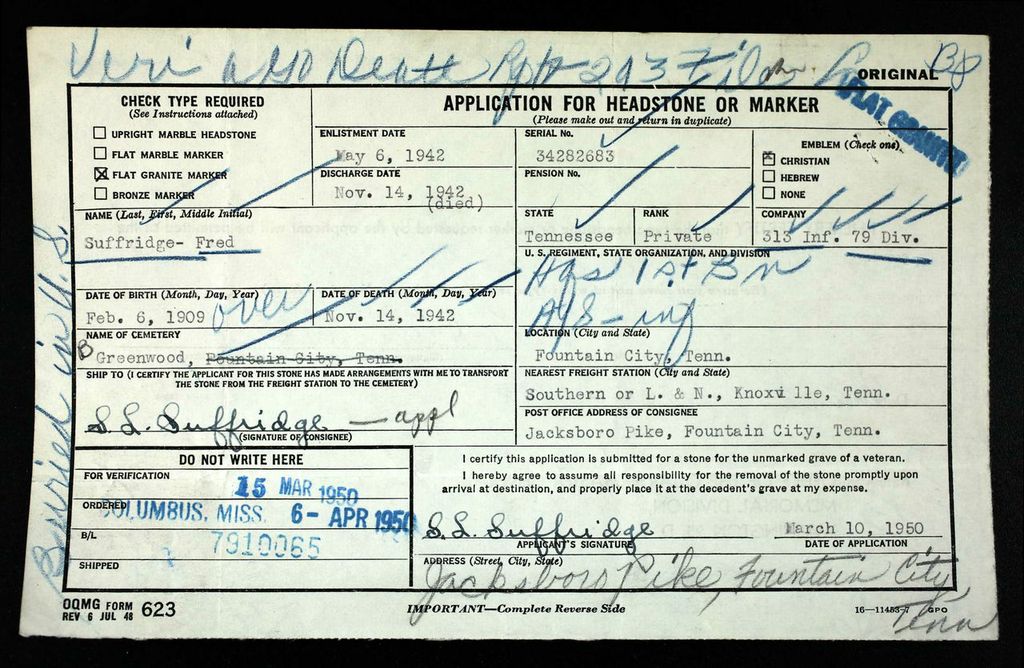 Veri AGO Death Rpt 293 File BP
ORIGINAL
FLAT GRANITE
CHECK TYPE REQUIRED
(See Instructions attached)
UPRIGHT MARBLE HEADSTONE
FLAT MARBLE MARKER
FLAT GRANITE MARKER
BRONZE MARKER
APPLICATION FOR HEADSTONE OR MARKER
(Please make out and return in duplicate)
ENLISTMENT DATE
May 6, 1942
DISCHARGE DATE
Nov. 14, 1942
(died)
SERIAL No.
34282683
PENSION No.
EMBLEM (Check one)
CHRISTIAN
HEBREW
NONE
NAME (Last, First, Middle Initial)
Suffridge- Fred
STATE
Tennessee
RANK
Private
COMPANY
313 Inf. 79 Div.
U. S. REGIMENT, STATE ORGANIZATION, AND DIVISION
Hqs 1st Bn
DATE OF BIRTH (Month, Day, Year)
Feb. 6, 1909
over
DATE OF DEATH (Month, Day, Year)
Nov. 14, 1942
NAME OF CEMETERY
Greenwood, Fountain City, Tenn.
LOCATION (City and State)
Fountain City, Tenn.
SHIP TO (I CERTIFY THE APPLICANT FOR THIS STONE HAS MADE ARRANGEMENTS WITH ME TO TRANSPORT
THE STONE FROM THE FREIGHT STATION TO THE CEMETERY)
S. L. Suffridge — appl
(SIGNATURE OF CONSIGNEE)
NEAREST FREIGHT STATION (City and State)
Southern or L. & N., Knoxville, Tenn.
POST OFFICE ADDRESS OF CONSIGNEE
Jacksboro Pike, Fountain City, Tenn.
DO NOT WRITE HERE
FOR VERIFICATION
15 MAR 1950
ORDERED
COLUMBUS, MISS. 6- APR 1950
B/L
7910065
SHIPPED
I certify this application is submitted for a stone for the unmarked grave of a veteran.
I hereby agree to assume all responsibility for the removal of the stone promptly upon
arrival at destination, and properly place it at the decedent's grave at my expense.
S. L. Suffridge
APPLICANT'S SIGNATURE
March 10, 1950
DATE OF APPLICATION
ADDRESS (Street, City, State)
Jacksboro Pike, Fountain City
Tenn
Buried in U.S.
OQMG FORM
REV 6 JUL 48 623
IMPORTANT—Complete Reverse Side
16—11453-7 GPO